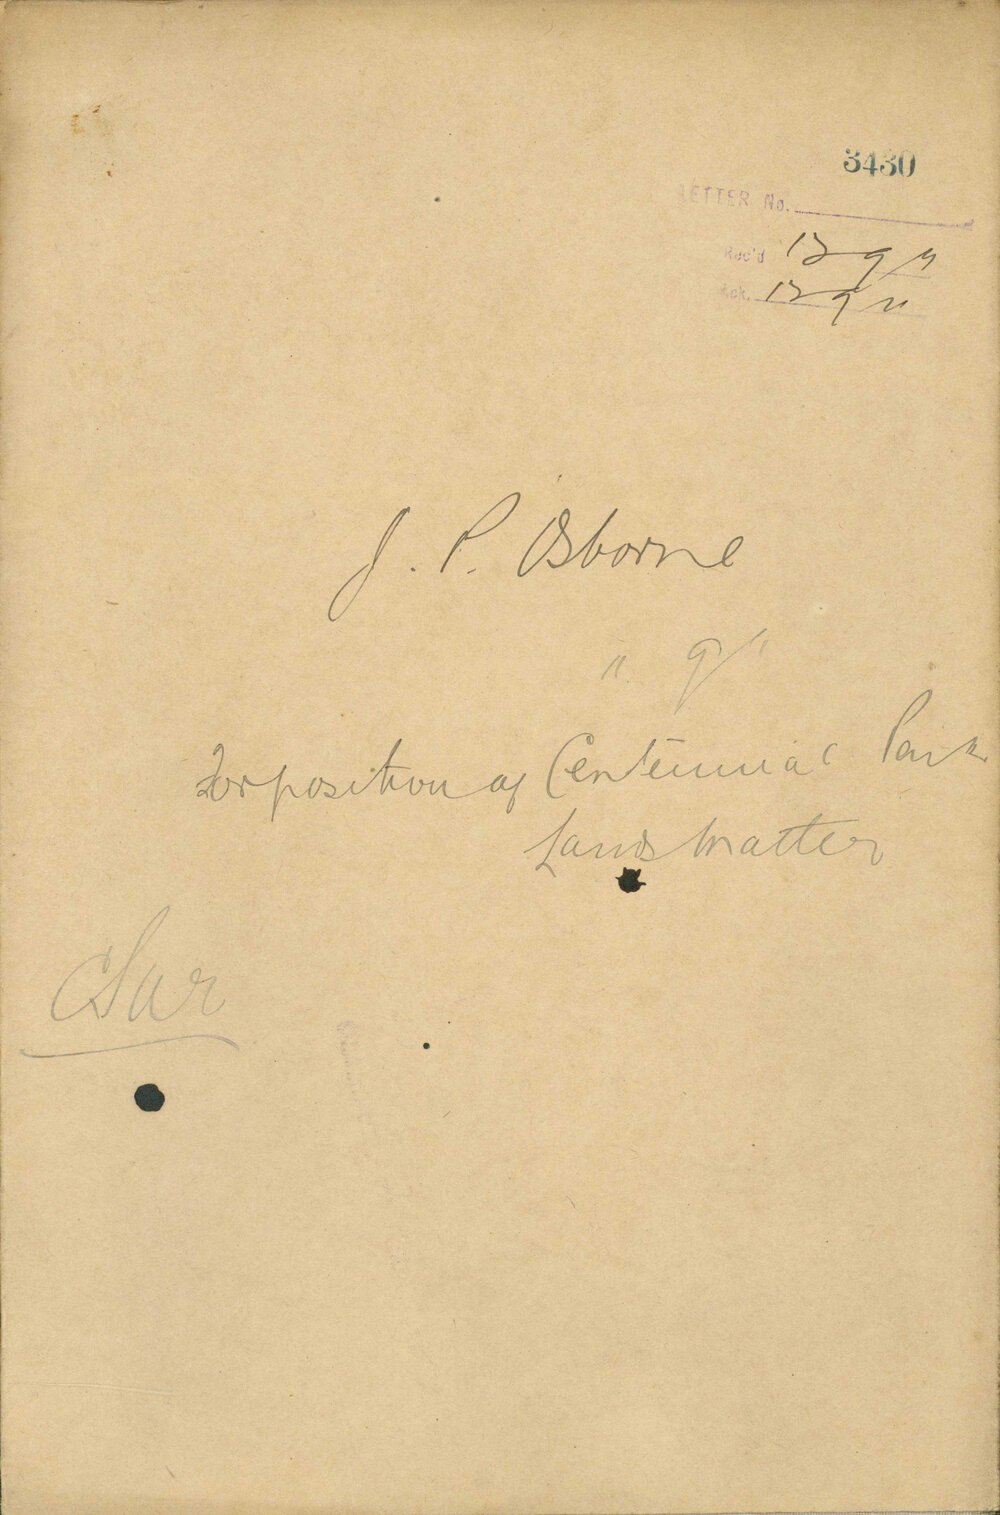 3430
LETTER No.
Rec'd 12 9 11
Ack. 12 9 11
J. P. Osborne
" 9/ "
For position of Centennial Park
Lands Matter